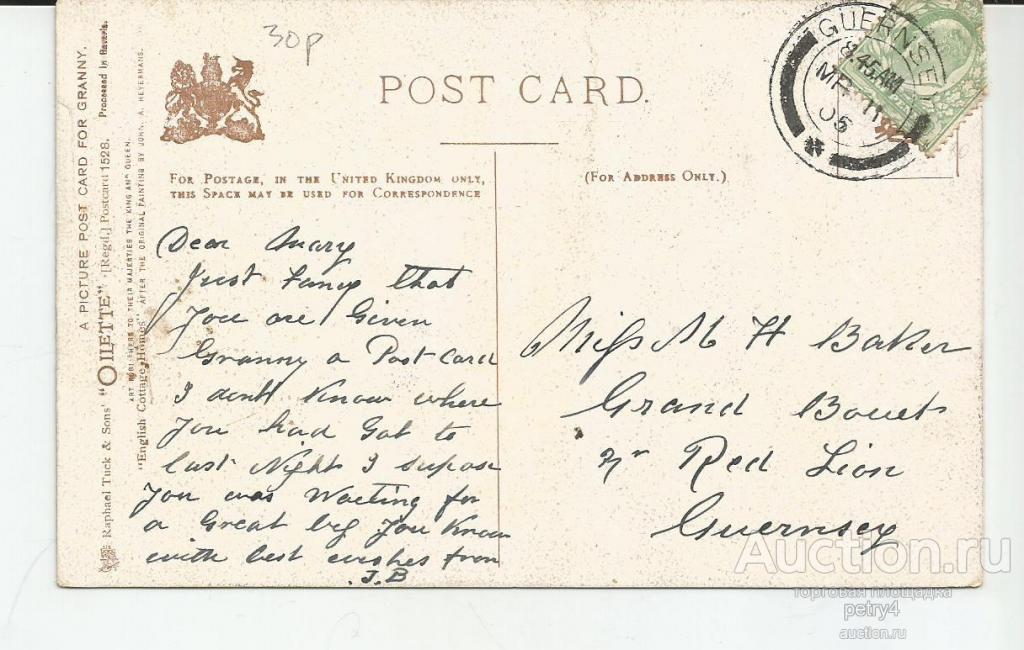 30p
POST CARD.
GUERNSEY
8.45AM
MR 11
05
FOR POSTAGE, IN THE UNITED KINGDOM ONLY,
THIS SPACE MAY BE USED FOR CORRESPONDENCE
(FOR ADDRESS ONLY.)
A PICTURE POST CARD FOR GRANNY.
Raphael Tuck & Sons' "OILETTE" [Regd.] Postcard 1528. Processed in Bavaria.
ART PUBLISHERS TO THEIR MAJESTIES THE KING AND QUEEN.
"English Cottage Homes" AFTER THE ORIGINAL PAINTING BY JOHN. A. HEYERMANS.
Dear Mary
Just Fancy that
You are Given
Granny a Post Card
I dont Know where
You had Got to
last Night I supose
You was Waeting for
a Great big You Know
with best wishes from
J.B
Miss M H Baker
Grand Bouet
nr Red Lion
Guernsey
Auction.ru
торговая площадка
petry4
auction.ru